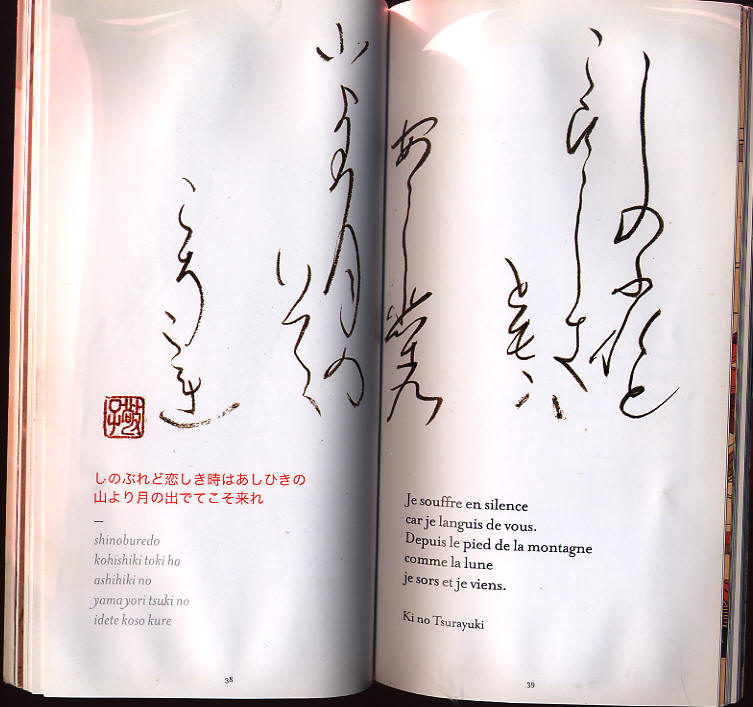 しのふれと
こひしき
山より月の
しのぶれど恋しき時はあしひきの
山より月の出でてこそ来れ
—
shinoburedo
kohishiki toki ha
ashihiki no
yama yori tsuki no
idete koso kure
38
Je souffre en silence
car je languis de vous.
Depuis le pied de la montagne
comme la lune
je sors et je viens.
Ki no Tsurayuki
39